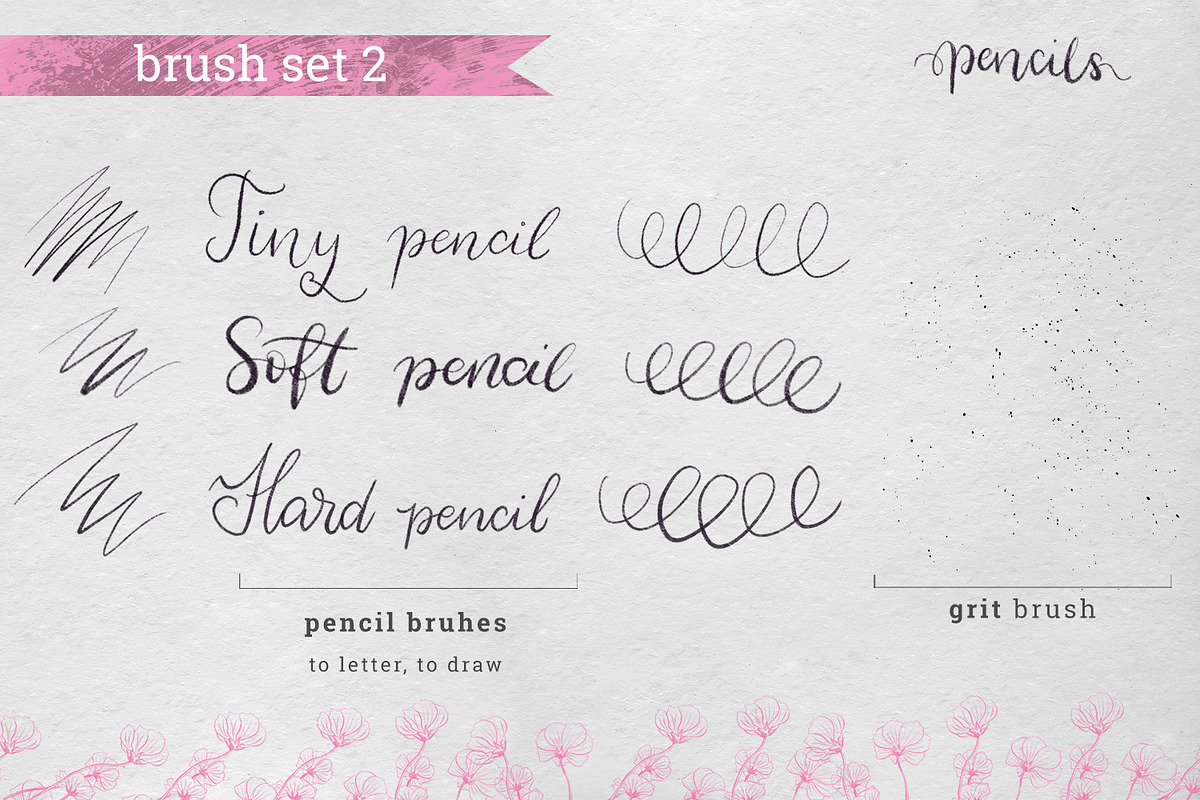 brush set 2
pencils
Tiny pencil
Soft pencil
Hard pencil
pencil bruhes
to letter, to draw
grit brush